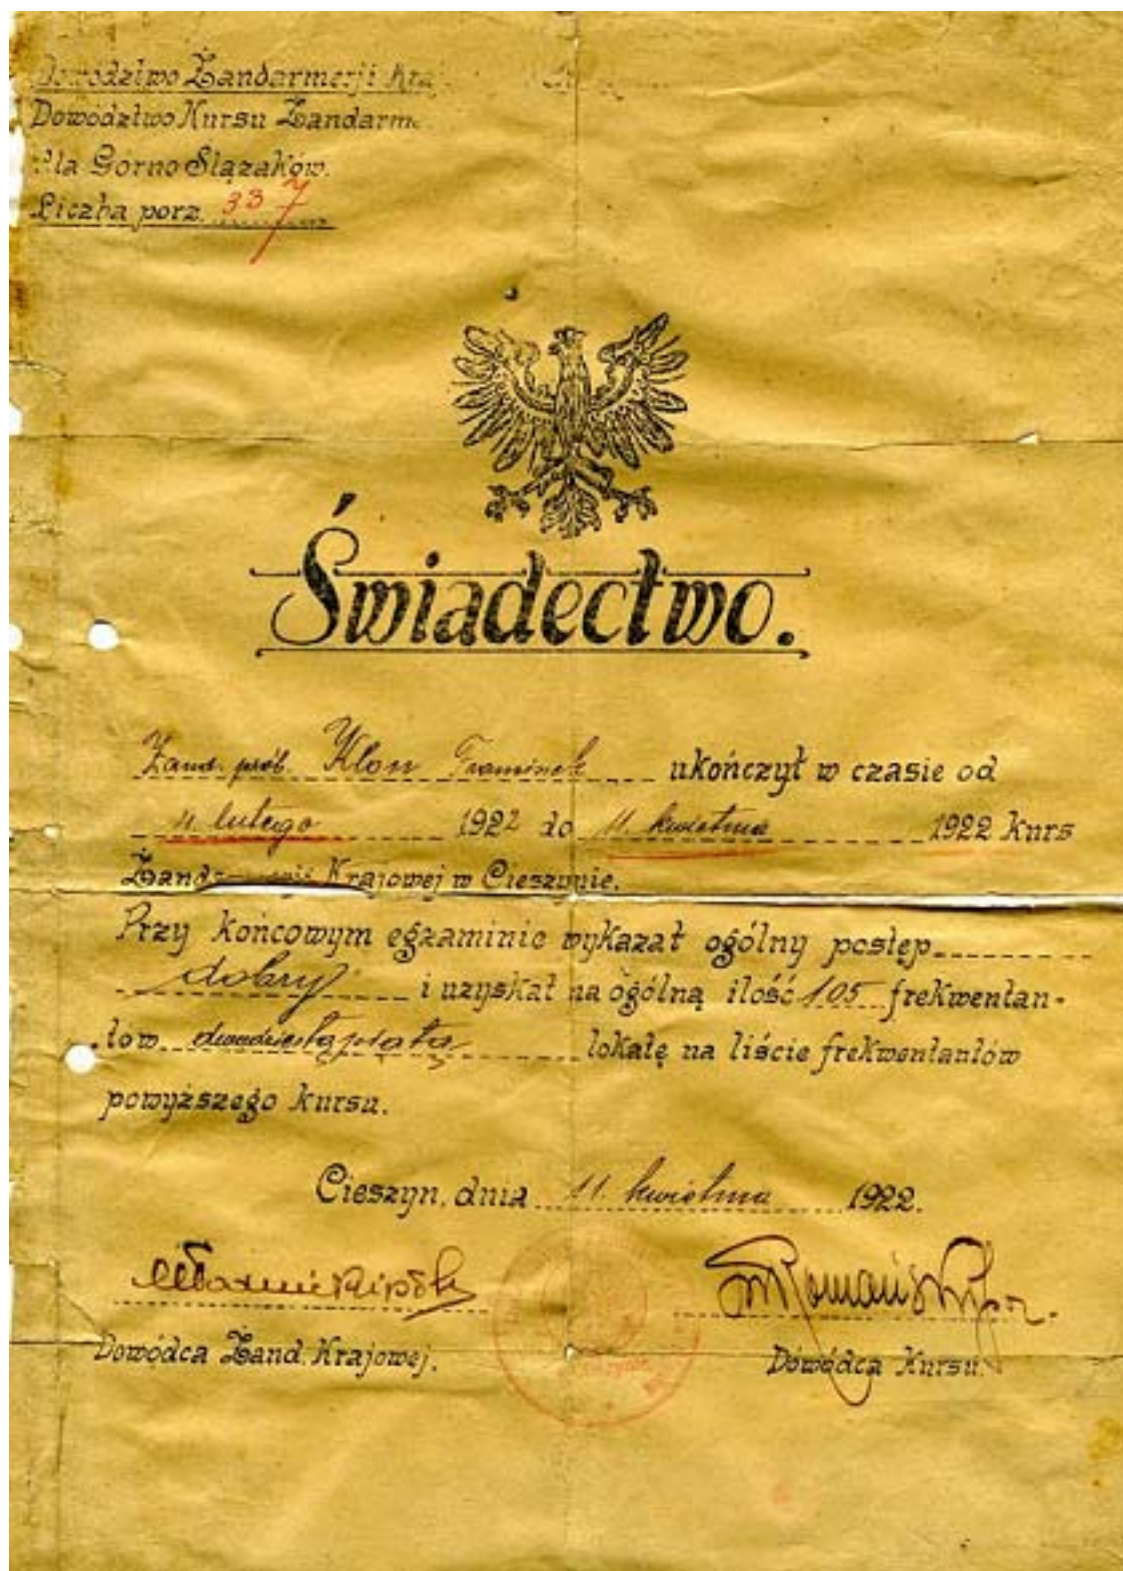 Dowództwo Żandarmerji Kraj
Dowództwo Kursu Żandarm
dla Górno Ślązaków.
Liczba porz. 337
Świadectwo.
Żand. prób. Klon Franciszek ukończył w czasie od
4. lutego 1922 do 11. kwietnia 1922 kurs
Żandarmerji Krajowej w Cieszynie.
Przy końcowym egzaminie wykazał ogólny postęp
dobry i uzyskał na ogólną ilość 105 frekwentan-
tów dwudziestąpiątą lokatę na liście frekwentantów
powyższego kursu.
Cieszyn, dnia 11. kwietnia 1922.
Dowódca Żand. Krajowej.
Dowódca Kursu.